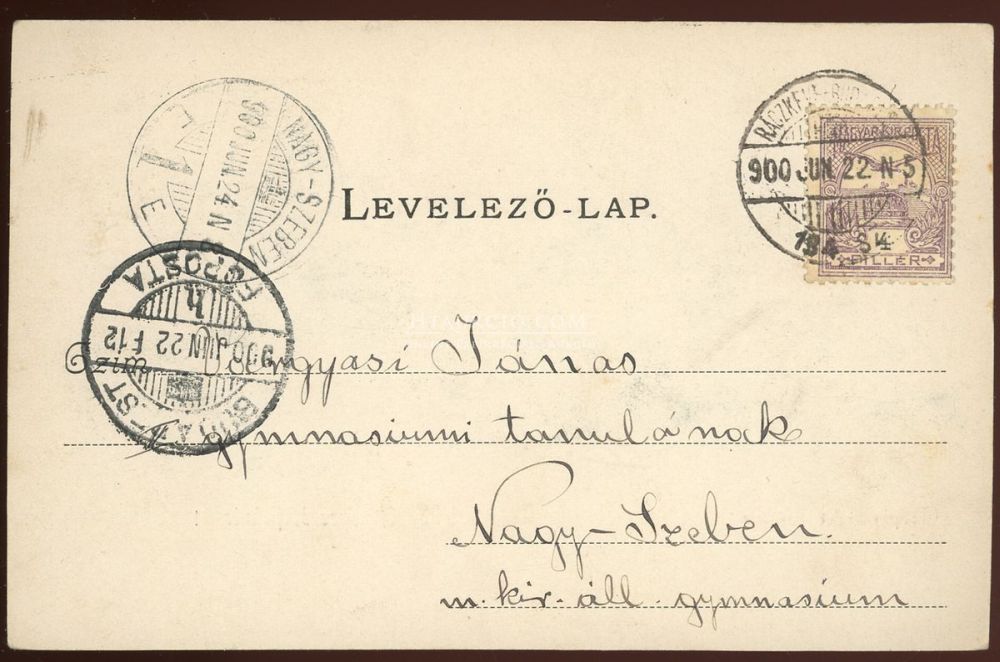 NAGY-SZEBEN
900 JUN. 24 N
1 E
RÁCZKEVE-BUD
900 JUN 22 N 5
MAGYAR KIR. POSTA
FILLÉR
LEVELEZŐ-LAP.
FŐPOSTA
h
900 JUN 22 F 12
BUDAPEST
János
gymnasiumi tanulának
Nagy-Szeben.
m. kir. áll. gymnasium